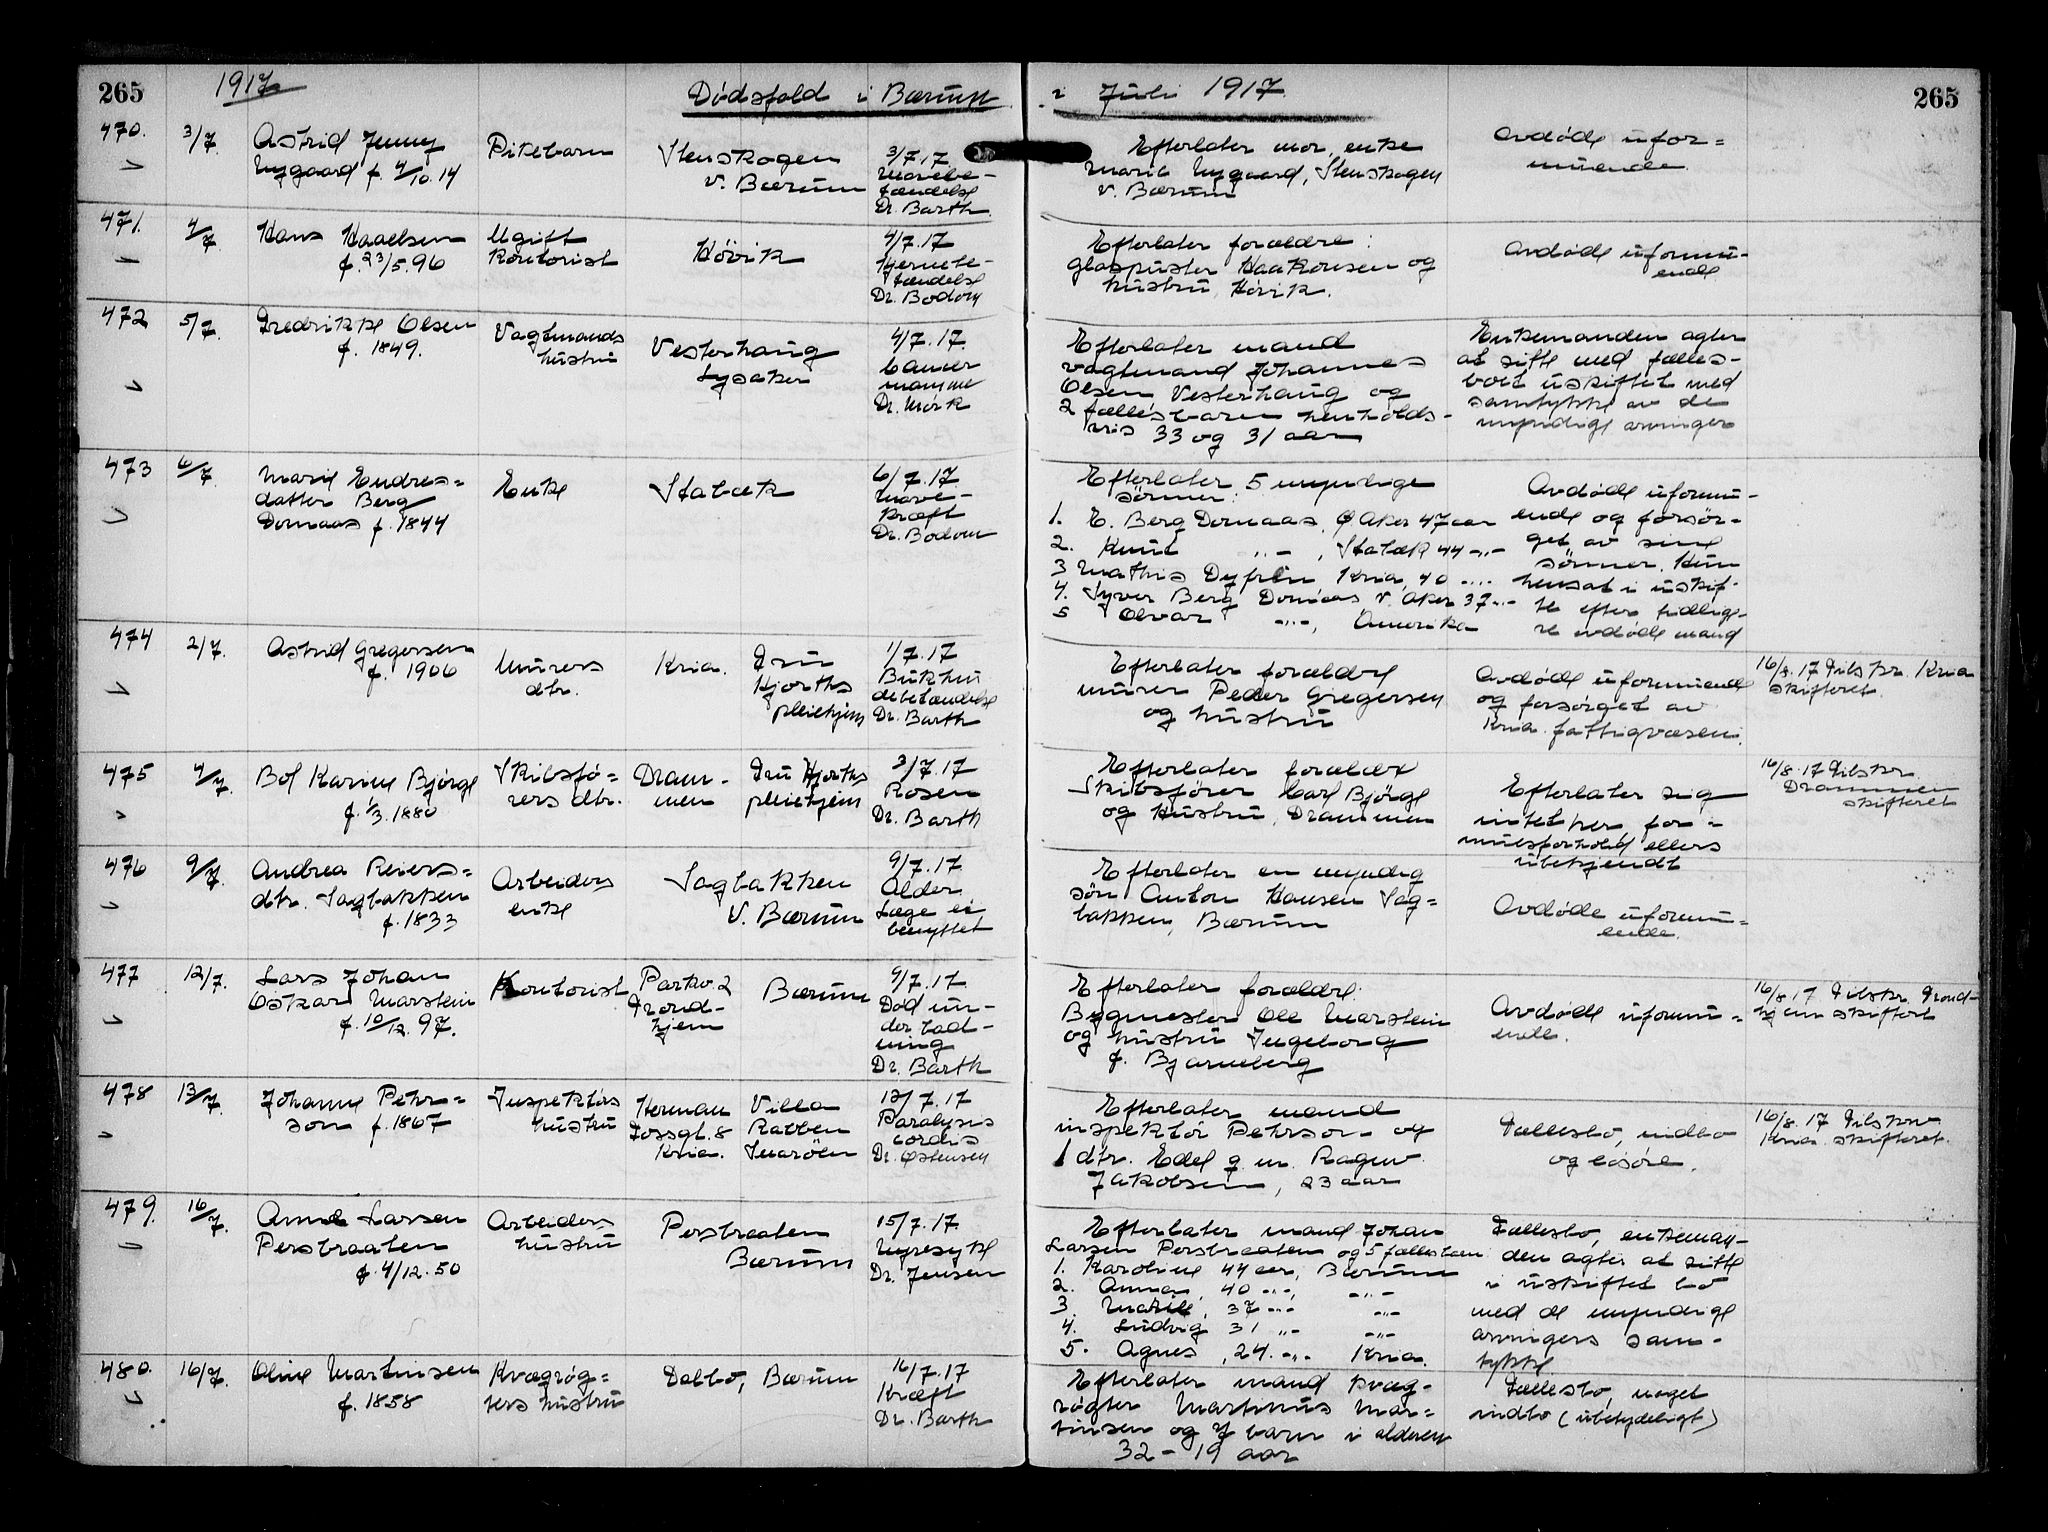 265
1917
Dødsfald i Bærum
i Juli 1917
265
470.
3/7.
Astrid Jenny
Nygaard f. 4/10.14
Pikebarn
Stenskogen
V. Bærum
3/7.17
Dr. Barth
Efterlater mor, enke
Maria Nygaard, Stenskogen
V. Bærum
Avdøde ufor=
muende.
471.
4/7.
Hans Haaelsen
f. 23/5.96
Ugift
kontorist
Høvik
4/7.17
Hjernebe-
tændelse
Dr. Bodom
Efterlater forældre:
glaspuster Haakonsen og
hustru, Høvik.
Avdøde uformu-
ende
472
5/7.
Fredrikke Olsen
f. 1849.
Vagtmands
hustru
Vesterhaug
Lysaker
4/7.17.
Cancer
mamme
Dr. Mørk
Efterlater mand
vagtmand Johannes
Olsen Vesterhaug og
2 fællesbarn henholds-
vis 33 og 31 aar
Enkemanden agter
at sitte med fælles-
boet uskiftet med
samtykke av de
myndige arvinger
473
6/7.
Marie Endres=
datter Berg
Domaas f. 1844
Enke
Stabæk
6/7.17
Mave-
kræft
Dr. Bodom
Efterlater 5 myndige
sønner:
1. E. Berg Domaas, Ø Aker 47 aar
2. Knut " - , Stabæk 44 -"-
3 Mathis Dyfren Kria, 40 -"-
4. Syver Berg Domaas V. Aker 37 -"-
5 Olvar -"-, Amerika
Avdøde uformu-
ende og forsør-
get av sine
sønner. Hun
hensat i uskif-
te efter tidlige-
re avdøde mand
474
2/7.
Astrid Gregersen
f. 1906
Murers
dtr.
Kria.
Fru
Hjorths
pleiehjem
1/7.17
Bukhin
debetændelse
Dr. Barth
Efterlater forældre
murer Peder Gregersen
og hustru
Avdøde uformuende
og forsørget av
Kria. fattigvæsen.
16/8.17 Tilskr. Kria
skifteret.
475
4/7.
Bol Karine Bjørge
f. 1/3.1880
Skibsfø=
rers dtr.
Dram-
men
Fru Hjorths
pleiehjem
3/7.17
Rosen
Dr. Barth
Efterlater forældre
Skibsfører Carl Bjørge
og hustru, Drammen
Efterlater sig
intet her for-
muesforhold ellers
ubekjendt
16/8.17 Tilskr.
Drammen
skifteret
476
9/7.
Andrea Reiers=
dtr. Sagbakken
f. 1833
Arbeiders
enke
Sagbakken
V. Bærum
9/7.17
Alder
Læge ei
benyttet
Efterlater en myndig
søn Anton Hansen Sag=
bakken, Bærum
Avdøde uformu=
ende.
477
12/7.
Lars Johan
Oskar Marstein
f. 10/12.97.
Kontorist
Parkv. 2
Trond-
hjem
Bærum
9/7.17
Død un-
der bad-
ning
Dr. Barth
Efterlater forældre:
Bygmester Ole Marstein
og hustru Ingeborg
f. Bjarneberg
Avdøde uformu=
ende.
16/8.17 Tilskr. Trond-
hjem skifteret
478
13/7.
Johanne Pehr=
son f. 1867
Inspektørs
hustru
Herman
Fossgt. 8
Kria.
Villa
Rabben
Snarøen
12/7.17
Paralysis
cordis
Dr. Østensen
Efterlater mand
inspektør Pehrson og
1 dtr. Edel g. m. Ragnv.
Jakobsen, 23 aar
Fællesbo, indbo
og løsøre.
16/8.17 Tilskrev
Kria. skifteret.
479.
16/7.
Anne Larsen
Persbraaten
f. 4/12.50
Arbeiders
hustru
Persbraaten
Bærum
15/7.17.
Nyresyke
Dr. Jensen
Efterlater mand Johan
Larsen Persbraaten og 5 fællesbarn
1. Karoline 44 aar, Bærum
2. Anna, 40 -"-, -"-
3. Marie, 37 -"- -"-
4. Ludvig 31 "- -"-
5. Agnes, 24. -"- Kria.
Fællesbo, enkeman-
den agter at sitte
i uskiftet bo
med de myndige
arvingers sam-
tykke
480.
16/7.
Oline Martinsen
f. 1858
Kvægrøg=
ters hustru
Dælbo, Bærum
16/7.17
Kræft
Dr. Barth
Efterlater mand kvæg-
røgter Martinus Mar=
tinsen og 7 barn i alderen
32 - 19 aar
Fællesbo, noget
indbo (ubetydeligt)